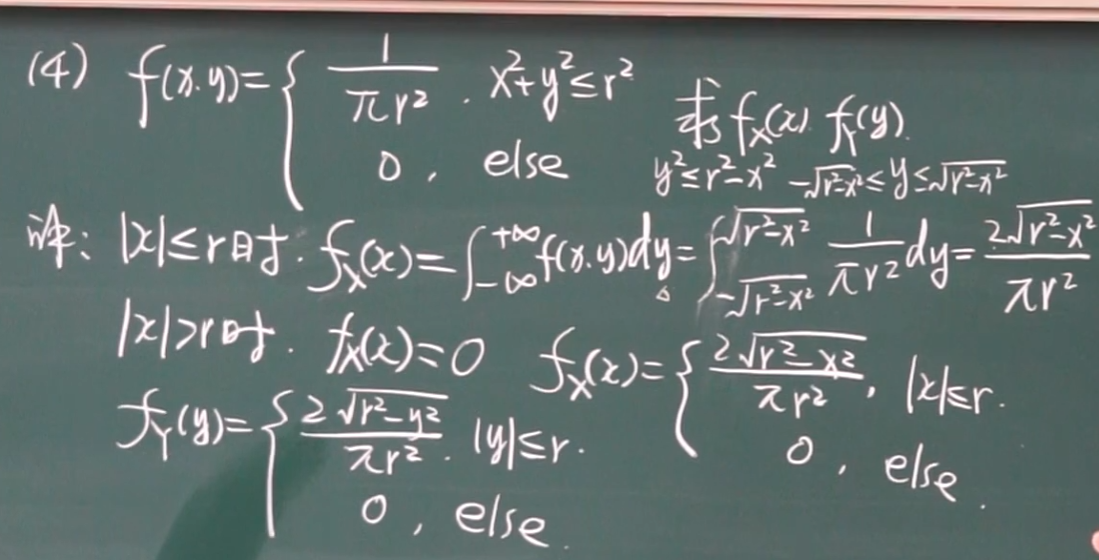 (4) f(x.y)={ 1/πr² . x²+y²≤r²
0 , else
求 f_X(x) f_Y(y).
y²≤r²-x² -√(r²-x²)≤y≤√(r²-x²)
解: |x|≤r时. f_X(x)=∫_{-∞}^{+∞}f(x.y)dy=∫_{-√(r²-x²)}^{√(r²-x²)} 1/πr² dy= 2√(r²-x²)/πr²
|x|>r时. f_X(x)=0 f_X(x)={ 2√(r²-x²)/πr² , |x|≤r.
0 , else.
f_Y(y)={ 2√(r²-y²)/πr² . |y|≤r.
0 , else.